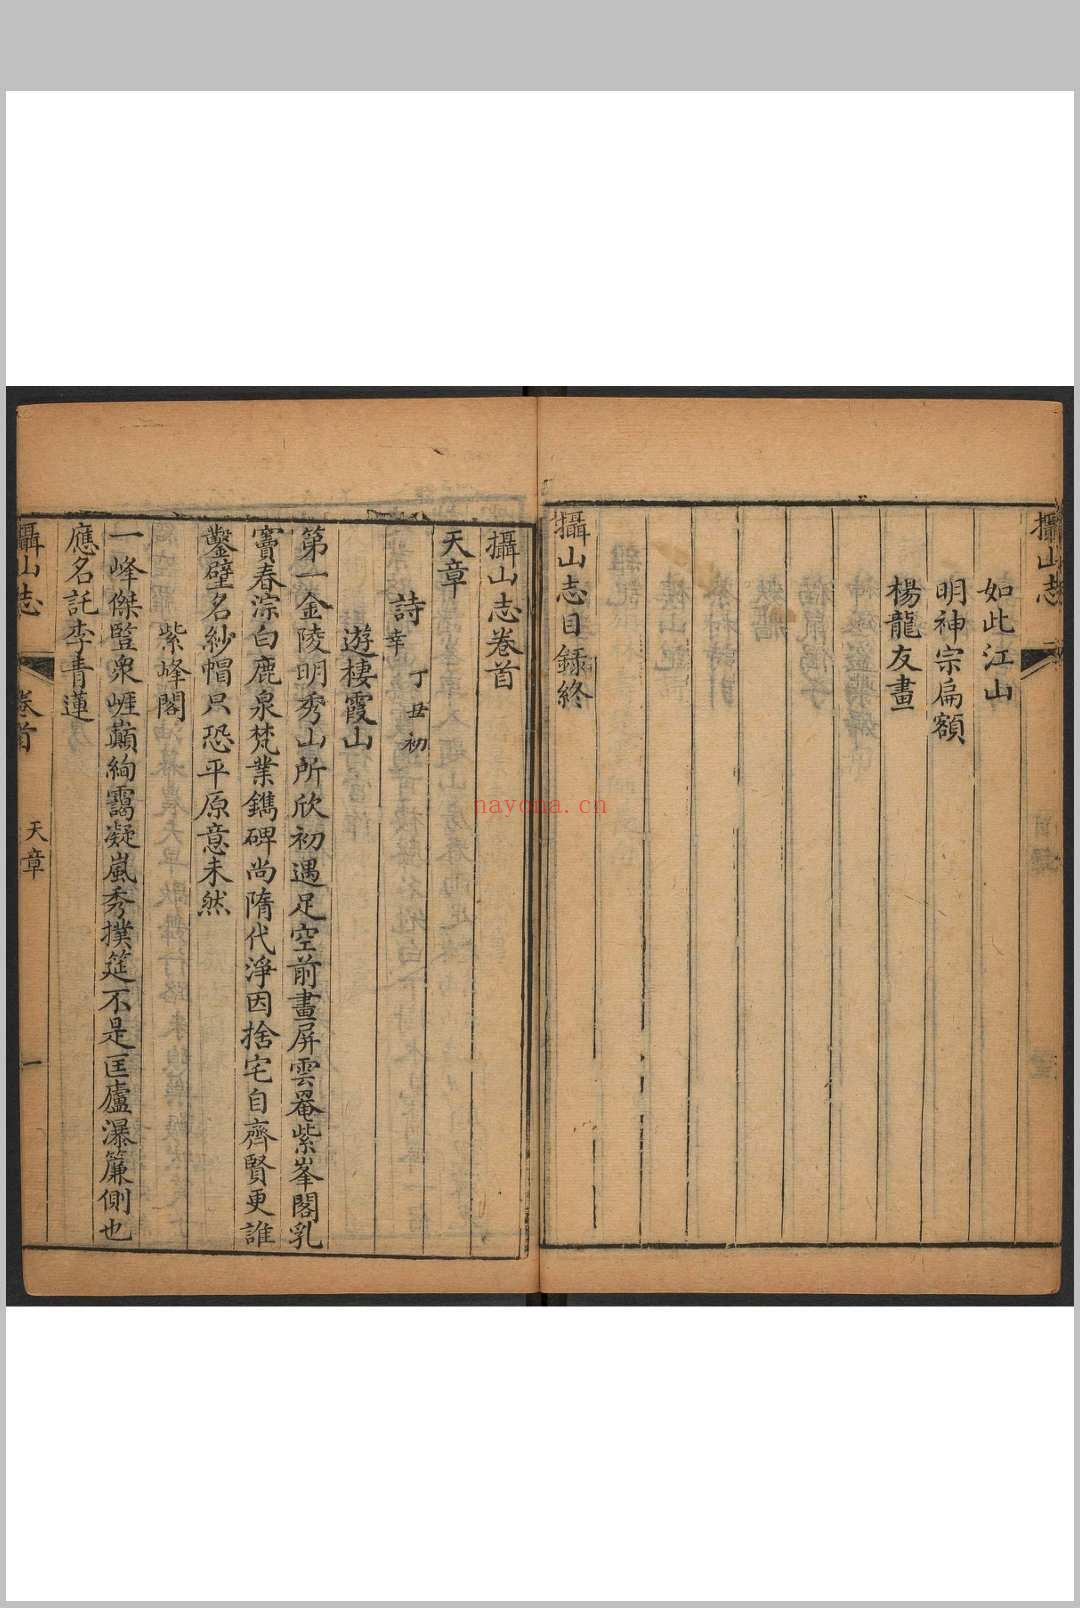 攝山志
如此江山
明神宗扁額
楊龍友畫
攝山志目録終
攝山志卷首
天章
詩 丁丑初幸
遊棲霞山
第一金陵明秀山所欣初遇足空前畫屏雲罨紫峯閣乳
竇春淙白鹿泉梵業鐫碑尚隋代淨因捨宅自齊賢更誰
鑿壁名紗帽只恐平原意未然
紫峰閣
一峰傑豎衆崕巔絢靄凝嵐秀撲筵不是匡廬瀑簾側也
應名託李青蓮
攝山志 卷首 天章 一
nayona.cn